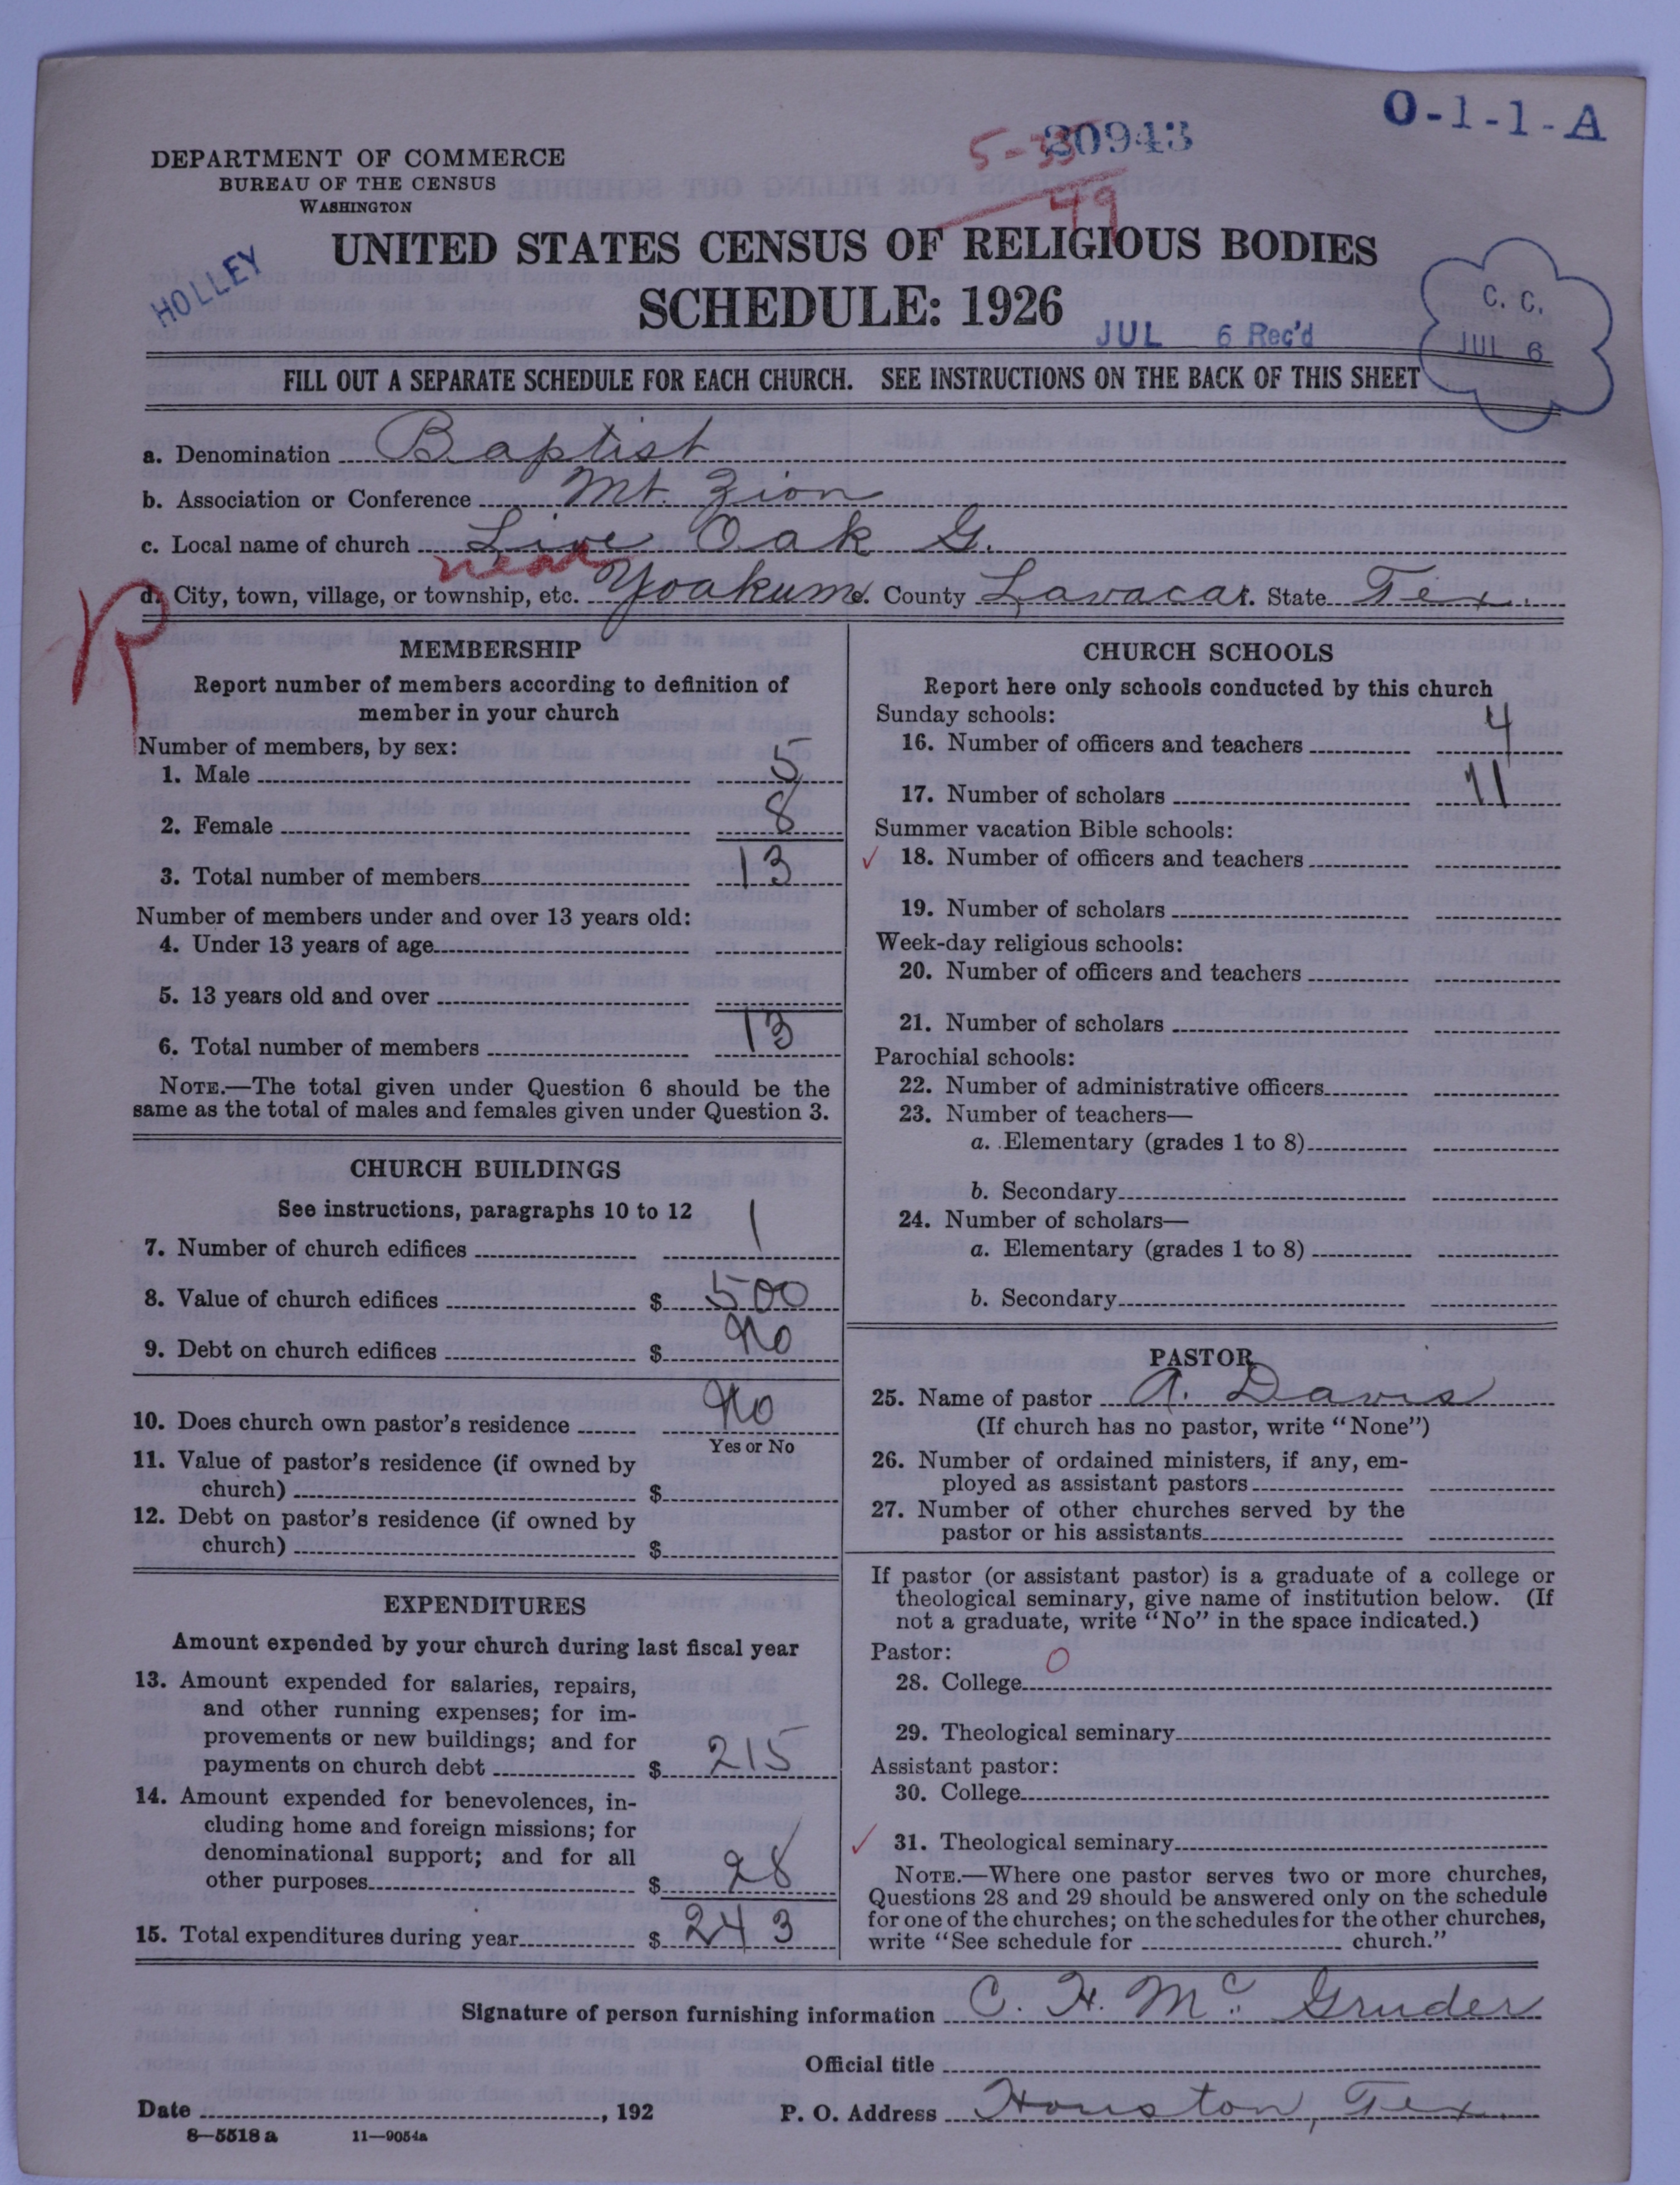 O-1-1-A
30943
5-33
49
DEPARTMENT OF COMMERCE
BUREAU OF THE CENSUS
WASHINGTON
HOLLEY
UNITED STATES CENSUS OF RELIGIOUS BODIES
SCHEDULE: 1926
JUL 6 Rec'd
C. C.
JUL 6
FILL OUT A SEPARATE SCHEDULE FOR EACH CHURCH. SEE INSTRUCTIONS ON THE BACK OF THIS SHEET
a. Denomination Baptist
b. Association or Conference Mt. Zion
c. Local name of church Live Oak G.
near
R
d. City, town, village, or township, etc. Yoakum e. County Lavaca f. State Tex.
MEMBERSHIP
Report number of members according to definition of
member in your church
Number of members, by sex:
1. Male 5
2. Female 8
3. Total number of members 13
Number of members under and over 13 years old:
4. Under 13 years of age
5. 13 years old and over
6. Total number of members 13
NOTE.—The total given under Question 6 should be the
same as the total of males and females given under Question 3.
CHURCH BUILDINGS
See instructions, paragraphs 10 to 12
7. Number of church edifices 1
8. Value of church edifices $ 500
9. Debt on church edifices $ No
10. Does church own pastor's residence No
Yes or No
11. Value of pastor's residence (if owned by
church) $
12. Debt on pastor's residence (if owned by
church) $
EXPENDITURES
Amount expended by your church during last fiscal year
13. Amount expended for salaries, repairs,
and other running expenses; for im-
provements or new buildings; and for
payments on church debt $ 215
14. Amount expended for benevolences, in-
cluding home and foreign missions; for
denominational support; and for all
other purposes $ 28
15. Total expenditures during year $ 243
CHURCH SCHOOLS
Report here only schools conducted by this church
Sunday schools:
16. Number of officers and teachers 4
17. Number of scholars 11
Summer vacation Bible schools:
18. Number of officers and teachers
19. Number of scholars
Week-day religious schools:
20. Number of officers and teachers
21. Number of scholars
Parochial schools:
22. Number of administrative officers
23. Number of teachers—
a. Elementary (grades 1 to 8)
b. Secondary
24. Number of scholars—
a. Elementary (grades 1 to 8)
b. Secondary
PASTOR
25. Name of pastor A. Davis
(If church has no pastor, write "None")
26. Number of ordained ministers, if any, em-
ployed as assistant pastors
27. Number of other churches served by the
pastor or his assistants
If pastor (or assistant pastor) is a graduate of a college or
theological seminary, give name of institution below. (If
not a graduate, write "No" in the space indicated.)
Pastor:
28. College 0
29. Theological seminary
Assistant pastor:
30. College
31. Theological seminary
NOTE.—Where one pastor serves two or more churches,
Questions 28 and 29 should be answered only on the schedule
for one of the churches; on the schedules for the other churches,
write "See schedule for church."
Signature of person furnishing information C. H. Mc. Gruder
Official title
Date , 192 P. O. Address Houston, Tex.
8—5518 a 11—9054a